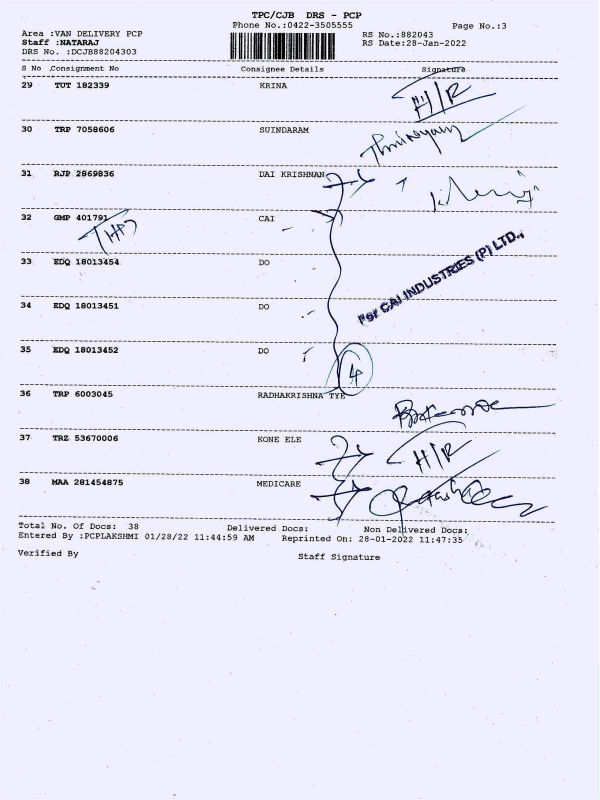 TPC/CJB DRS - PCP
Phone No.:0422-3505555
Page No.:3
Area :VAN DELIVERY PCP
RS No.:882043
Staff :NATARAJ
RS Date:28-Jan-2022
DRS No. :DCJB88204303
S No Consignment No Consignee Details Signature
29 TUT 182339 KRINA
H/R
30 TRP 7058606 SUINDARAM
31 RJP 2869836 DAI KRISHNAN
32 GMP 401791 CAI
33 EDQ 18013454 DO
For CAI INDUSTRIES (P) LTD.,
34 EDQ 18013451 DO
35 EDQ 18013452 DO
4
36 TRP 6003045 RADHAKRISHNA TYE
37 TRZ 53670006 KONE ELE
H/R
38 MAA 281454875 MEDICARE
Total No. Of Docs: 38 Delivered Docs: Non Delivered Docs:
Entered By :PCPLAKSHMI 01/28/22 11:44:59 AM Reprinted On: 28-01-2022 11:47:35
Verified By Staff Signature